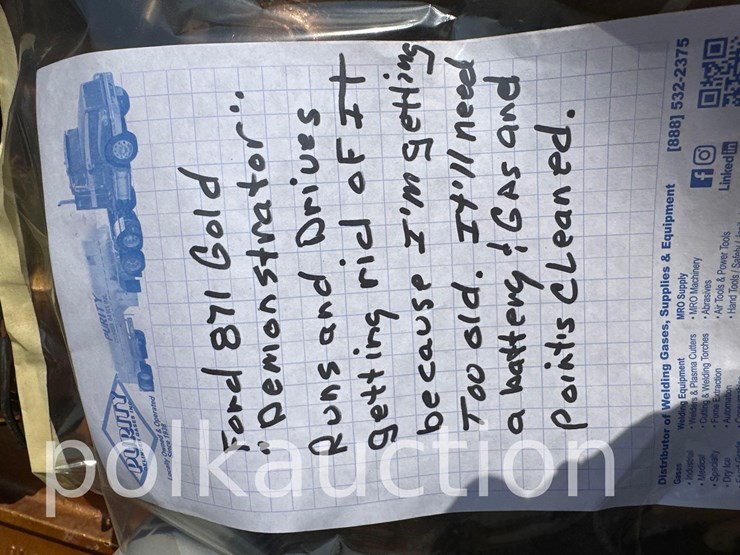 PURITY
Family Owned & Operated
Since 1938
Ford 871 Gold
"Demonstrator"
Runs and Drives
getting rid of It
because I'm getting
Too old. It'll need
a battery & GAS and
points CLeaned.
Distributor of Welding Gases, Supplies & Equipment [888] 532-2375
Gases
• Industrial
• Medical
• Specialty
• Dry Ice
Welding Equipment
• Welders & Plasma Cutters
• Cutting & Welding Torches
• Fume Extraction
• Automation
MRO Supply
• MRO Machinery
• Abrasives
• Air Tools & Power Tools
• Hand Tools / Safety
Linked in
polkauction